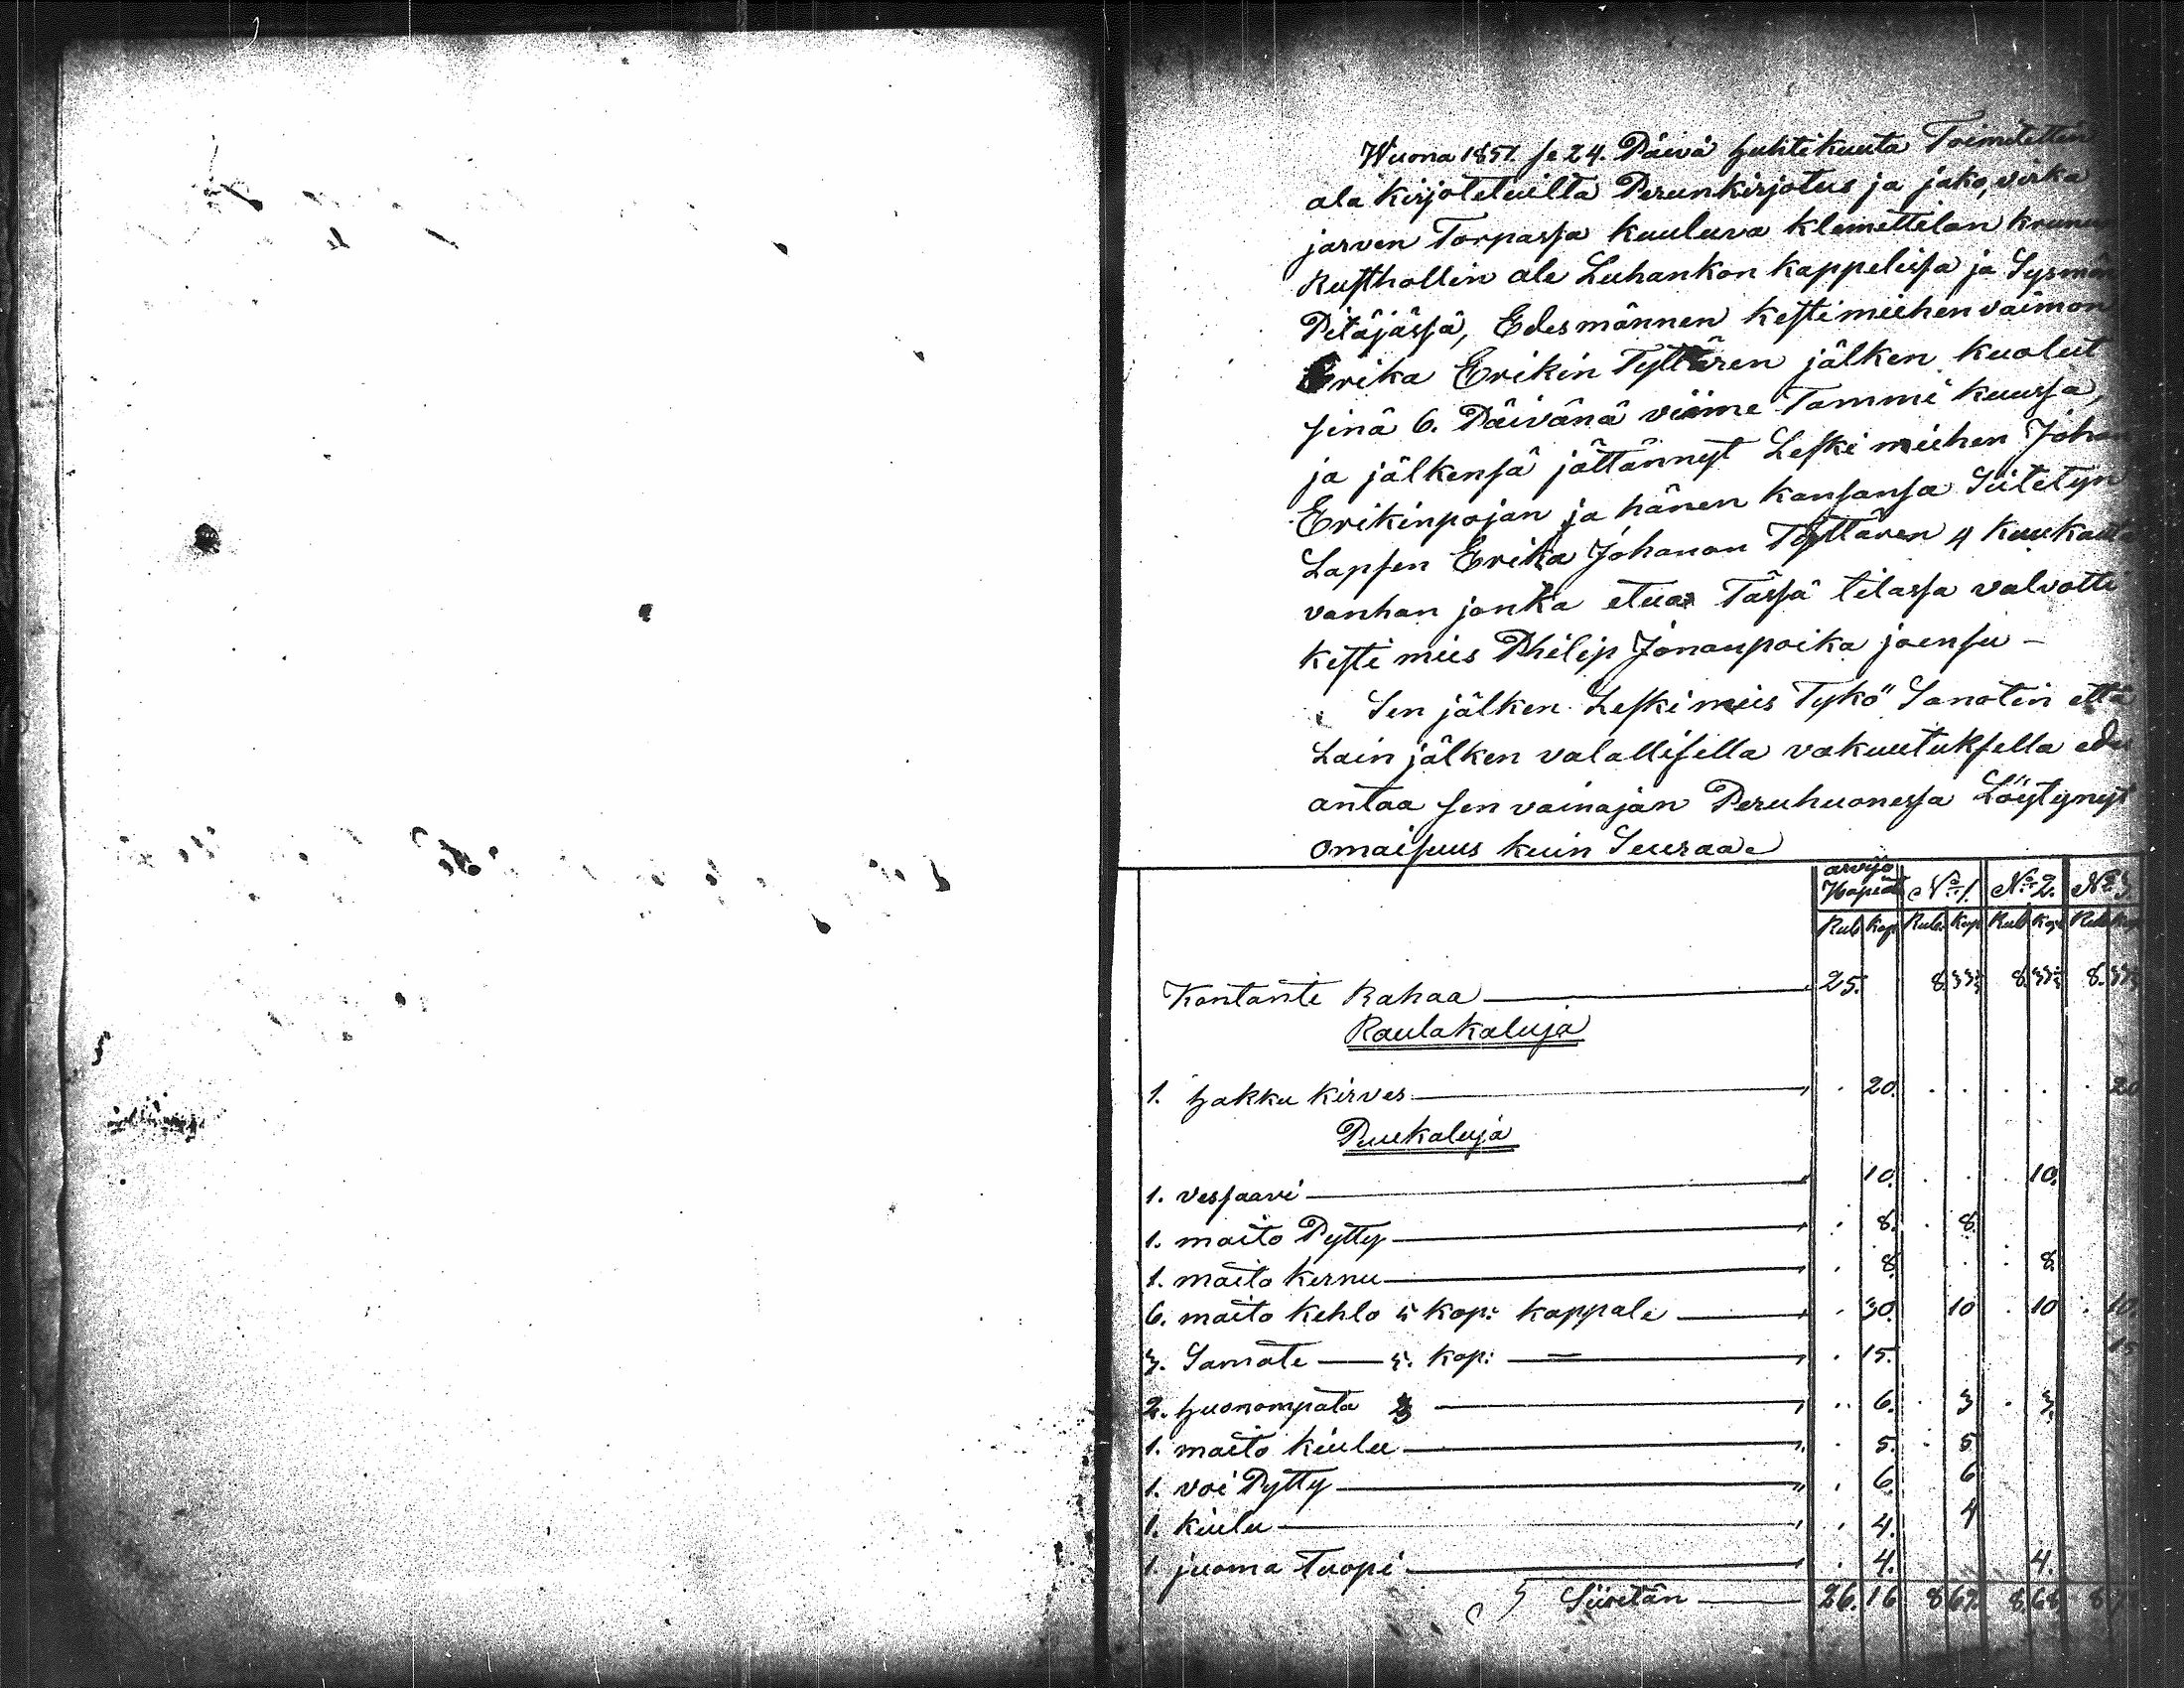 Wuona 1851. se 24. Päivä huhtikuuta Toimitettin
ala kirjoteluilta Perunkirjotus ja jako, virka
jarven Torpassa kuuluva klemettilan krunun
Rusthollin ale Luhankon kappelissa ja Sysmän
Pitäjässä, Edesmännen kestimiehen vaimon
Erika Erikin Tyttären jälken kuolut
sinä 6. Päivänä viime Tammi kuussa,
ja jälkensä jättännyt Leski miehen Johan
Erikinpojan ja hänen kansansa Siitetyn
Lapsen Erika Johanan Tyttären 4 kuukautta
vanhan jonka etua Tässä tilassa valvotti
kesti mies Philip Jonanpoika joensu –
Sen jälken Leski mies Tykö Sanotin että
Lain jälken valallisella vakuutuksella edes
antaa sen vainajan Peruhuonessa Löytynyt
omaisuus kuin Seuraa
arvijo Hopeat | No 1. | No 2. | No 3.
Rub Kop | Rub. Kop | Rub Kop | Rub Kop
Kontante Rahaa — 25. | 8 33⅓ | 8 33⅓ | 8. 33⅓
Raulakaluja
1. hakku kirves — " . 20. | . . | . . | . 20
Puukaluja
1. vessaavi — " 10. | . . | . 10.
1. maito Pytty — " . 8. | . 8.
1. maito kernu — " . 8 | . . | . 8.
6. maito kehlo 5 kop: kappale — " . 30. | 10 | . 10 | . 10.
3. Samate — 5. kop: — " . 15. | 15
2. huonompata 3 — " . 6. | . 3 | . 3.
1. maito kiulu — " . 5. | . 5
1. voi Pytty — " . 6. | 6
1. kiulu — " . 4. | 4
1. juoma Tuopi — " . 4. | 4.
Siiretän — 26. 16 | 8 67. | 8. 68 | 8